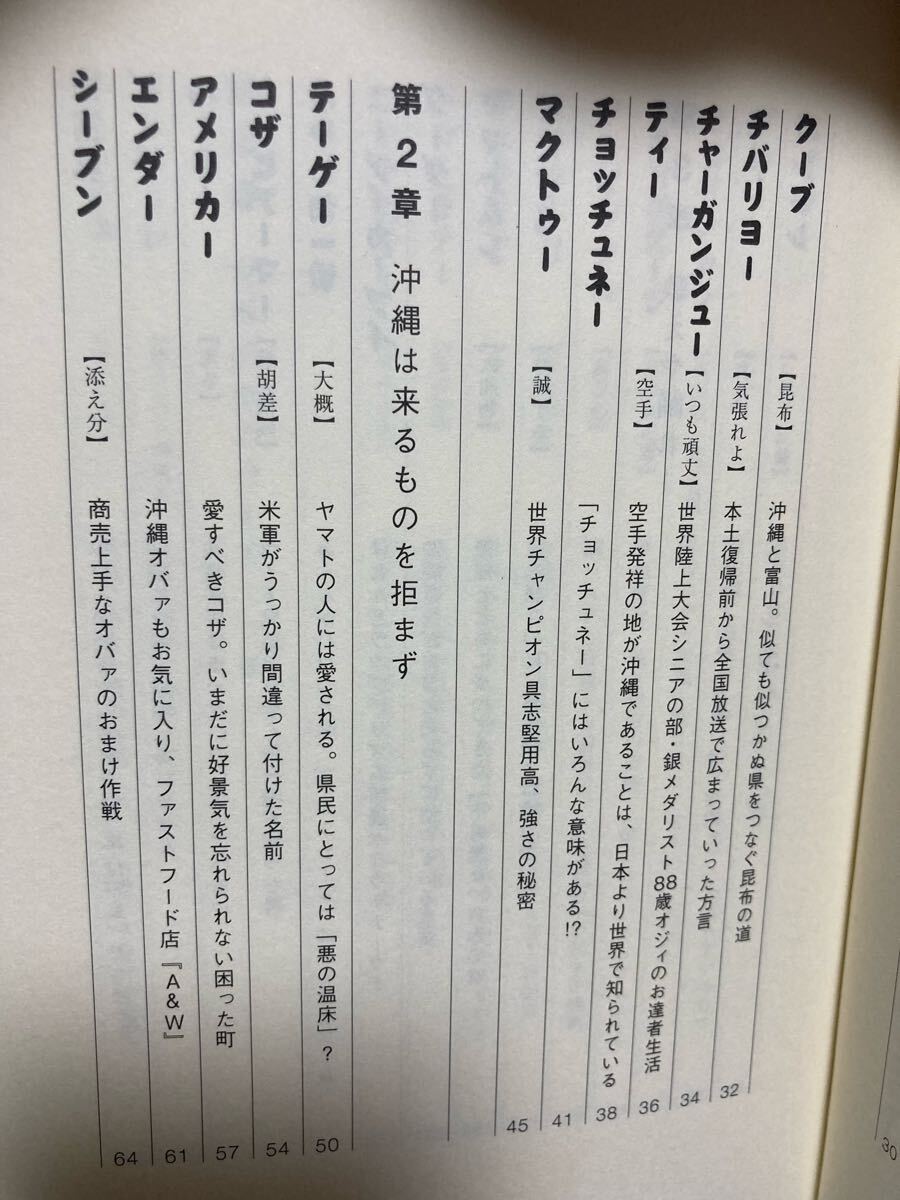 クーブ 【昆布】 沖縄と富山。似ても似つかぬ県をつなぐ昆布の道 32
チバリヨー 【気張れよ】 本土復帰前から全国放送で広まっていった方言 34
チャーガンジュー 【いつも頑丈】 世界陸上大会シニアの部・銀メダリスト88歳オジィのお達者生活 36
ティー 【空手】 空手発祥の地が沖縄であることは、日本より世界で知られている 38
チョッチュネー 「チョッチュネー」にはいろんな意味がある!? 41
マクトゥー 【誠】 世界チャンピオン具志堅用高、強さの秘密 45
第2章 沖縄は来るものを拒まず
テーゲー 【大概】 ヤマトの人には愛される。県民にとっては「悪の温床」? 50
コザ 【胡差】 米軍がうっかり間違って付けた名前 54
アメリカー 愛すべきコザ。いまだに好景気を忘れられない困った町 57
エンダー 沖縄オバァもお気に入り、ファストフード店『A&W』 61
シーブン 【添え分】 商売上手なオバァのおまけ作戦 64
30